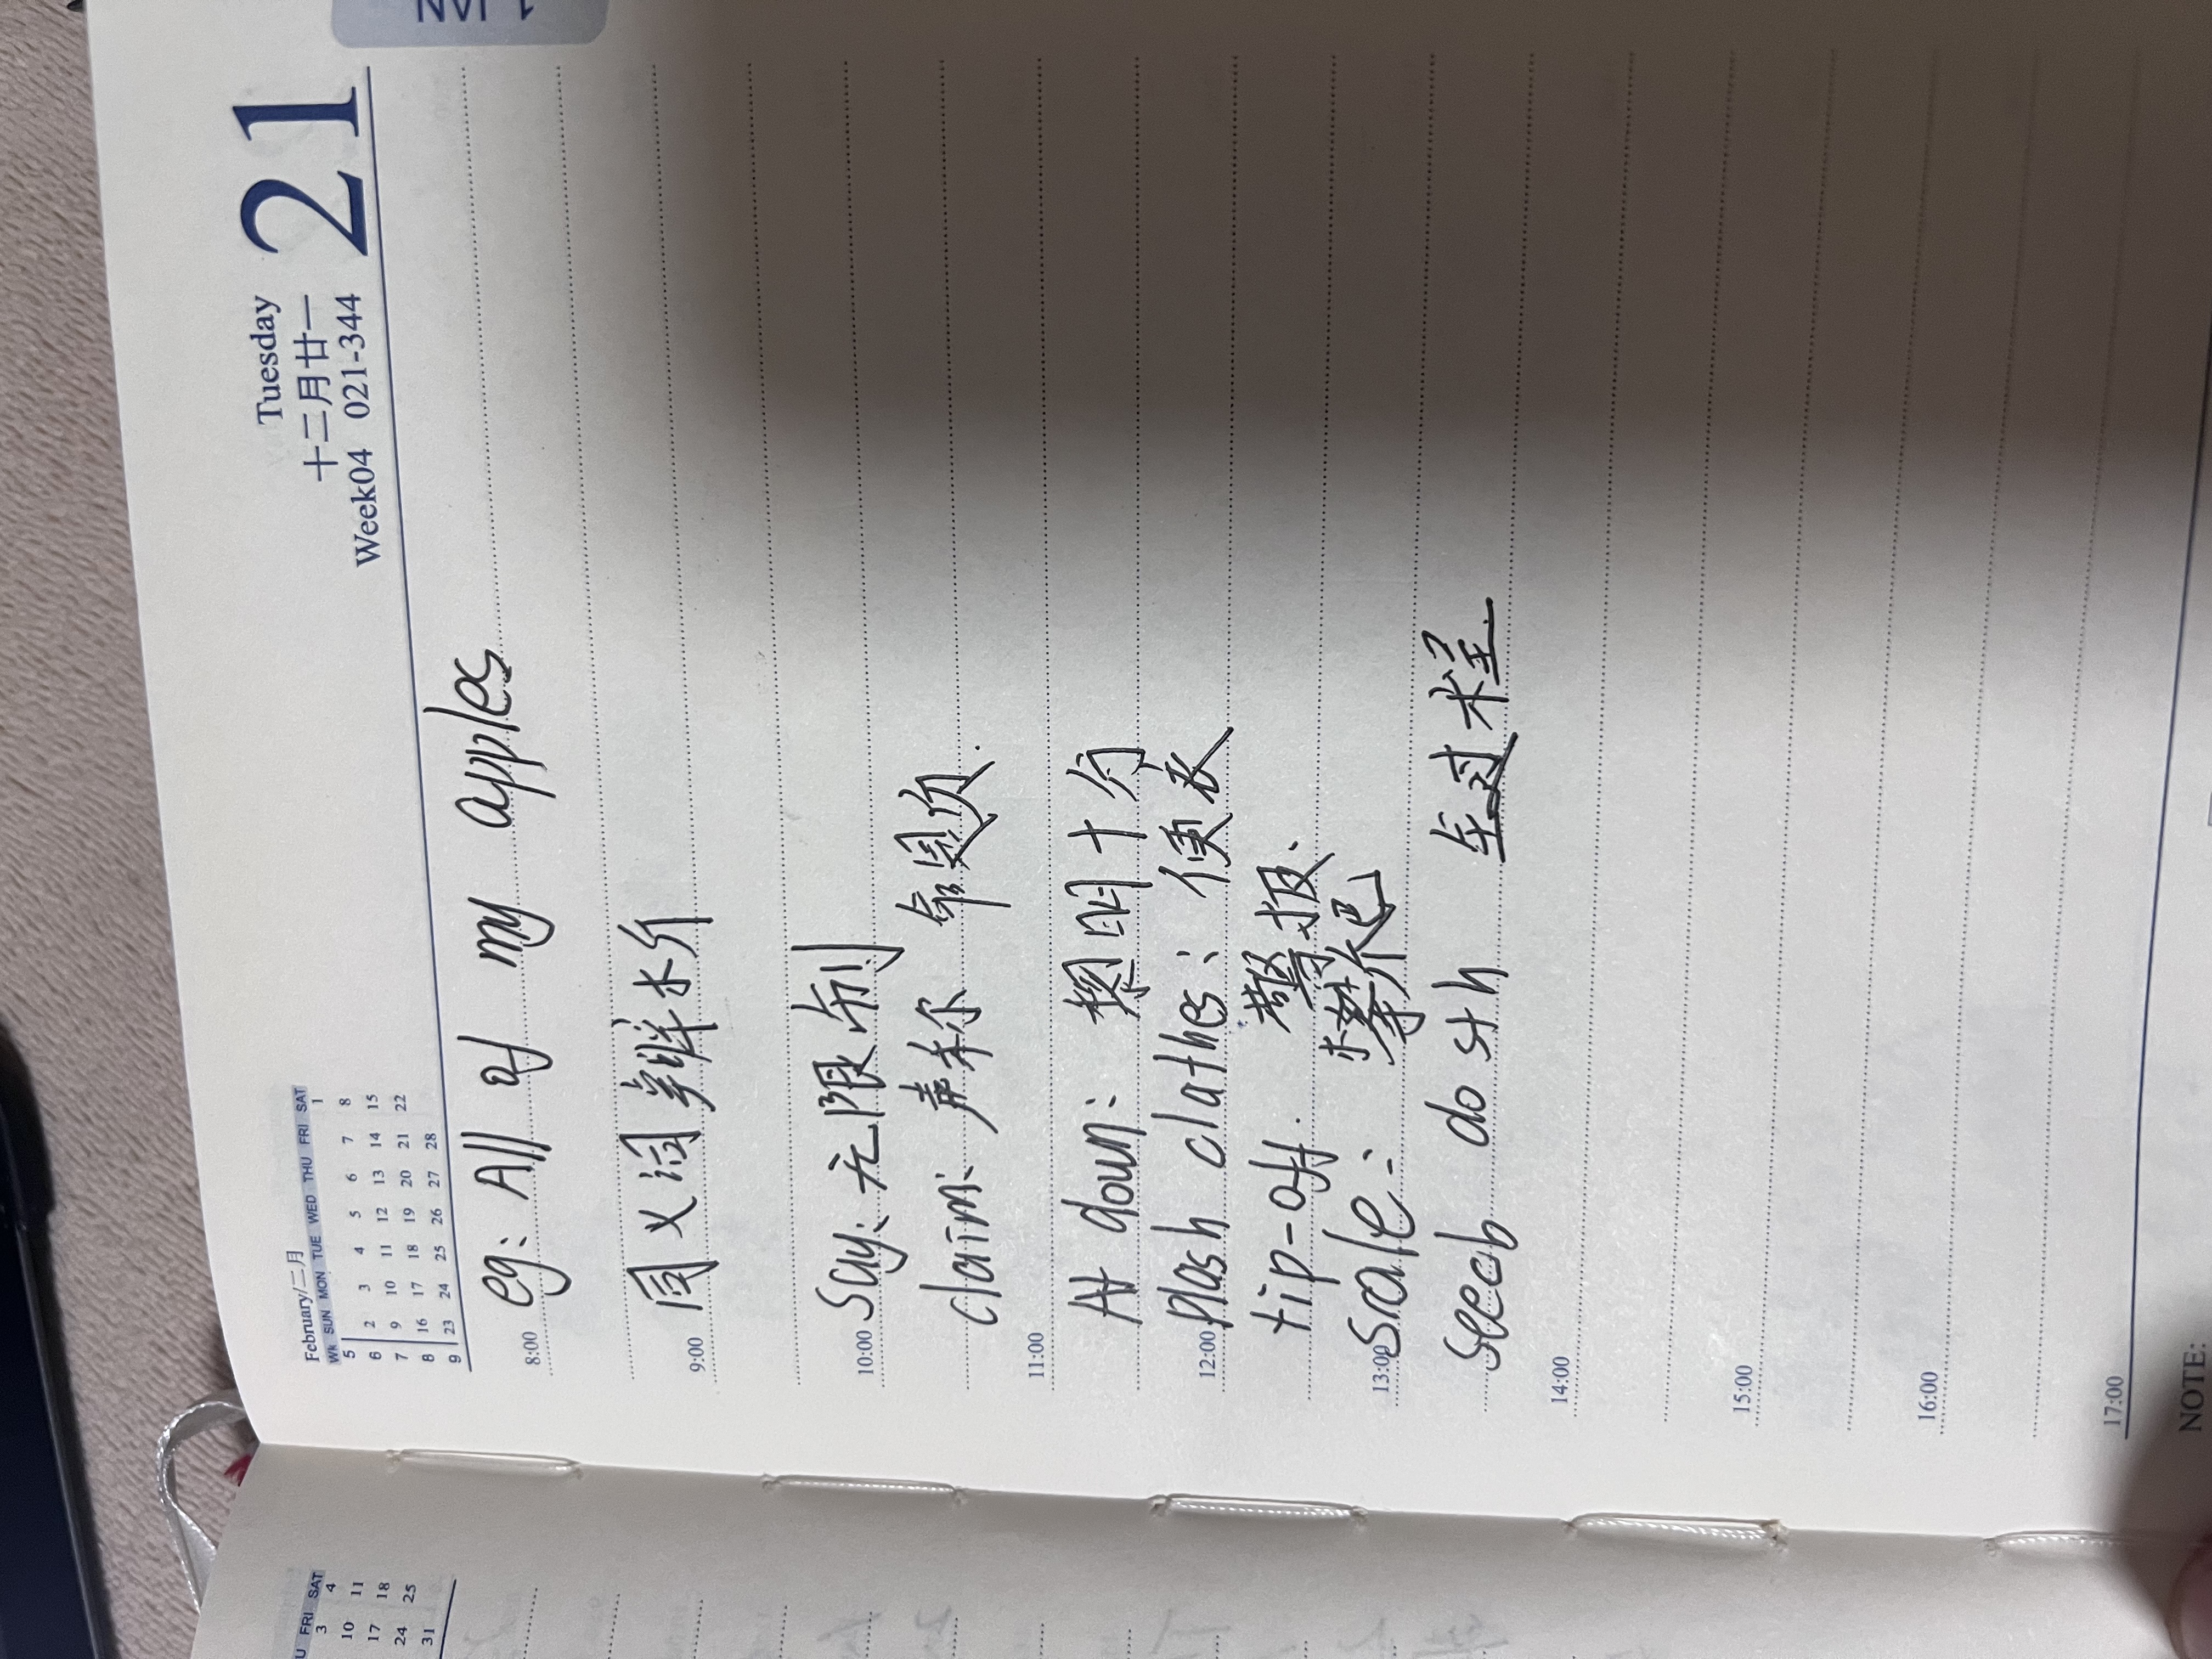 1 JAN
February/二月
Wk SUN MON TUE WED THU FRI SAT
5 1
6 2 3 4 5 6 7 8
7 9 10 11 12 13 14 15
8 16 17 18 19 20 21 22
9 23 24 25 26 27 28
Tuesday
十二月廿一
Week04 021-344
21
eg: All of my apples
8:00
同义词辨
9:00
Say: 无限制
10:00
claim: 声称 命题贞
11:00
At down: 十分
Plash clathes: 便衣
12:00
tip-off. 警报.
Scale: 攀爬
13:00
seeeb do sth 全过程
14:00
15:00
16:00
17:00
NOTE:
U FRI SAT
3 4
10 11
17 18
24 25
31